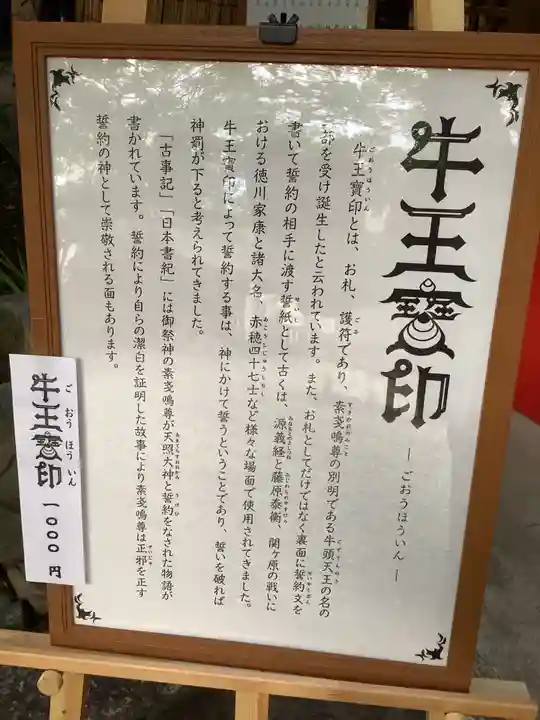 牛王寳印
― ごおうほういん ―
牛王寳印とは、お札、護符であり、素戔嗚尊の別明である牛頭天王の名の
一部を受け誕生したと云われています。また、お札としてだけではなく裏面に誓約文を
書いて誓約の相手に渡す誓紙として古くは、源義経と藤原泰衡、関ヶ原の戦いに
おける徳川家康と諸大名、赤穂四十七士など様々な場面で使用されてきました。
牛王寳印によって誓約する事は、神にかけて誓うということであり、誓いを破れば
神罰が下ると考えられてきました。
「古事記」「日本書紀」には御祭神の素戔嗚尊が天照大神と誓約をなされた物語が
書かれています。誓約により自らの潔白を証明した故事により素戔嗚尊は正邪を正す
誓約の神として崇敬される面もあります。
ごおうほういん
牛王寳印
一〇〇〇円